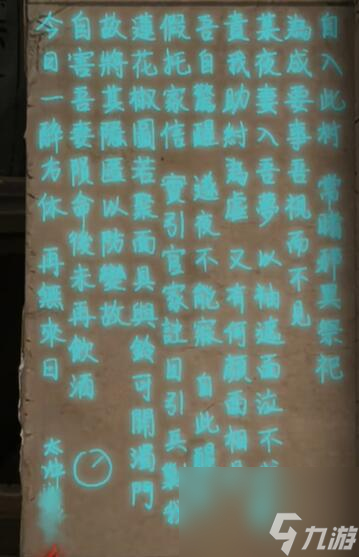 自入此村 常睹邪異祭祀
為成要事吾視而不見
某夜妻入吾夢以袖遮面泣不
責我助紂為虐 又有何顏面相
吾自驚醒 遂夜不能寐 自此
假托家信 實引官家註目引兵
蓮花椒圖若聚面具與鈸可開濁門
故將其隱匿以防變故
自害吾妻殞命後未再飲酒
今日一醉方休 再無來日
九游